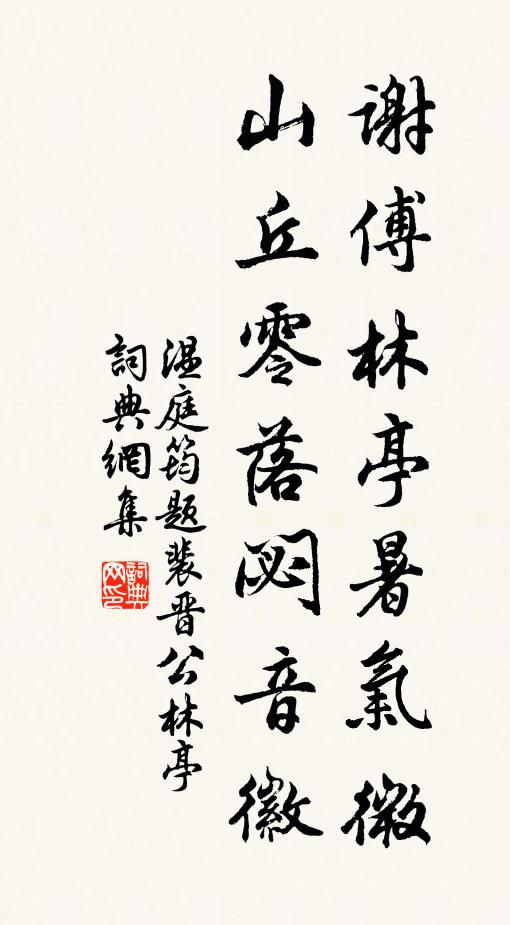 謝傅林亭暑氣微
山丘零落閟音徽
溫庭筠題裴晋公林亭
詞典網集
詞典
网印